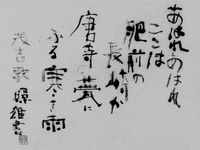 あはれあはれ
ここは
肥前の
長崎か
唐寺の甍に
ふる寒き雨
茂吉歌